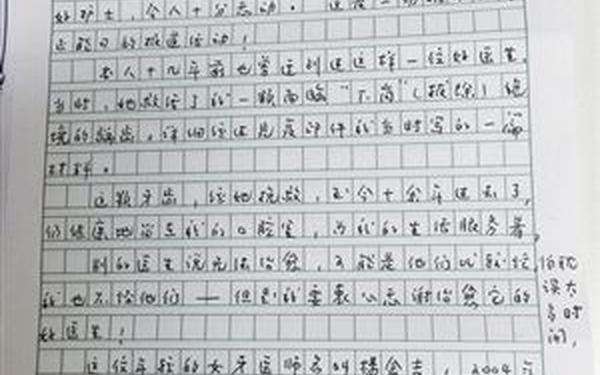 好护士,令人十分感动。这是一场
正能量的报道活动!
本人十九年前也曾遇到过这样一位好医生。
当时,她救活了我一颗面临"下岗"(拔除)绝
境的病齿,详细经过见复印件我当时写的一篇
材料。
这颗牙齿,经她抢救,至今十余年过去了,
仍健康地留在我的口腔里,为我的生活服务着。
别的医生说无法治愈,可能是他们以
我也不怪他们——但是我要衷心感谢治愈它的
好医生!
这位年轻的女牙医师名叫杨金吉,2004年
怕耽
误太
多时
间,